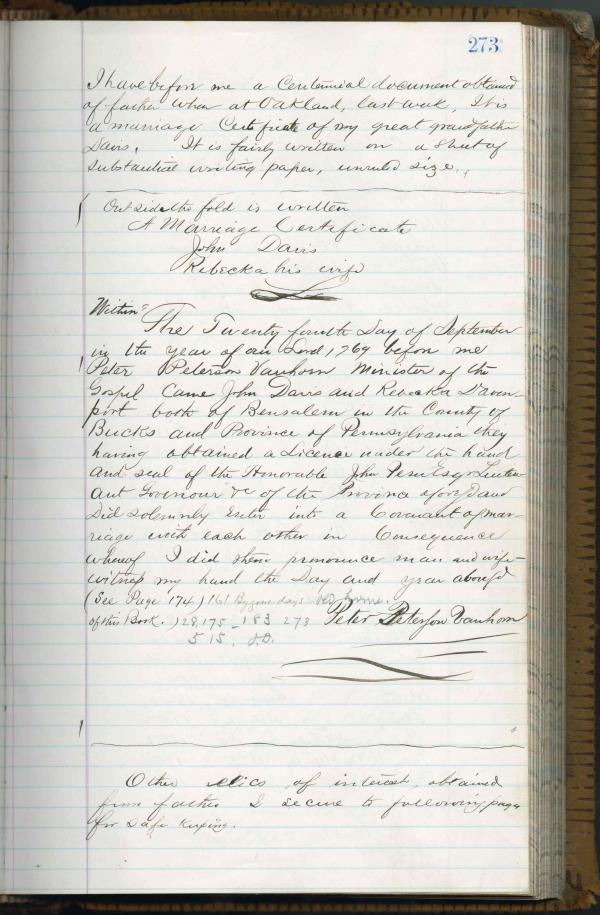 273
I have before me a Centennial document obtained
of father when at Oakland, last week, It is
a marriage Certificate of my great grandfather
Davis. It is fairly written on a sheet of
substantial writing paper, unruled size.
Outside the fold is written
A Marriage Certificate
John Davis
Rebecka his wife
Within
The Twenty fourth Day of September
in the year of our Lord 1769 before me
Peter Peterson Vanhorn Minister of the
Gospel Came John Davis and Rebecka Daven
port both of Bensalem in the County of
Bucks and Province of Pennsylvania they
having obtained a Licence under the hand
and seal of the Honorable John Penn Esqr Lieuten
ant Governour &c of the Province aforesd and
Did solemnly Enter into a Covenant of mar-
riage with each other in Consequence
whereof I did them pronounce man and wife
witness my hand the Day and year abovesd
(See Page 174) 161 Bygone days
of this Book. ) 28, 175 - 183 273 Peter Peterson Vanhorn
515. J.D.
Other relics of interest, obtained
from father I secure to following pages
for safe keeping.